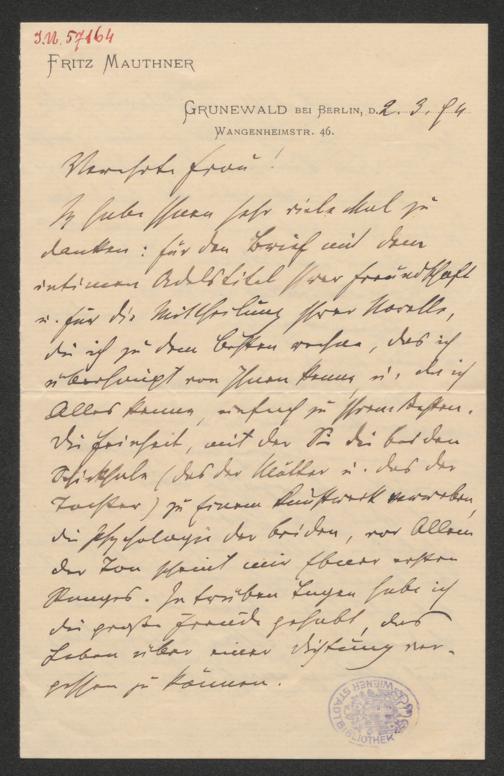 I.N. 57164
FRITZ MAUTHNER
GRUNEWALD BEI BERLIN, D. 2. 3. 94
WANGENHEIMSTR. 46.
Verehrte Frau!
Ich habe Ihnen sehr viele Mal zu
danken: für den Brief mit dem
intimen Adelstitel Ihrer Freundschaft
u. für die Mittheilung Ihrer Novelle,
die ich zu dem Besten rechne, das ich
überhaupt von Ihnen kenne u., da ich
Alles kenne, einfach zu Ihrem Besten.
Die Feinheit, mit der Sie die beiden
Schicksale (das der Mutter u. das der
Tochter) zu Einem Kunstwerk verweben,
die Psychologie der beiden, vor Allem
der Ton scheint mir Ebner ersten
Ranges. In trüben Tagen habe ich
die große Freude gehabt, das
Leben über einer Dichtung ver-
gessen zu können.
WIENER STADTBIBLIOTHEK